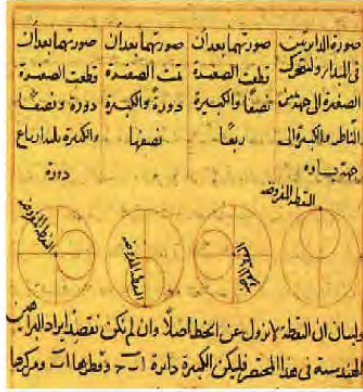 صورة الدايرتين
فى المبدا ولتتحرك
الصغيرة الى جهة
الناظر والكبيرة الى
جهة يساره
صورتهما بعد ان
قطعت الصغيرة
نصفا والكبيرة
ربعا
صورتهما بعد ان
تمت الصغيرة
دورة والكبيرة
نصفها
صورتهما بعد ان
قطعت الصغيرة
دورة ونصفا
والكبيرة ثلثة ارباع
دورة
النقطة المفروضة
النقطة المفروضة
النقطة المفروضة
النقطة المفروضة
ولبيان ان النقطة لا تزول عن الخط اصلا وان لم نكن نقصد ايراد البراهين
الهندسية فى هذا المختصر فليكن الكبيرة دايرة ا ب ج وقطرها ا ب ومركزها